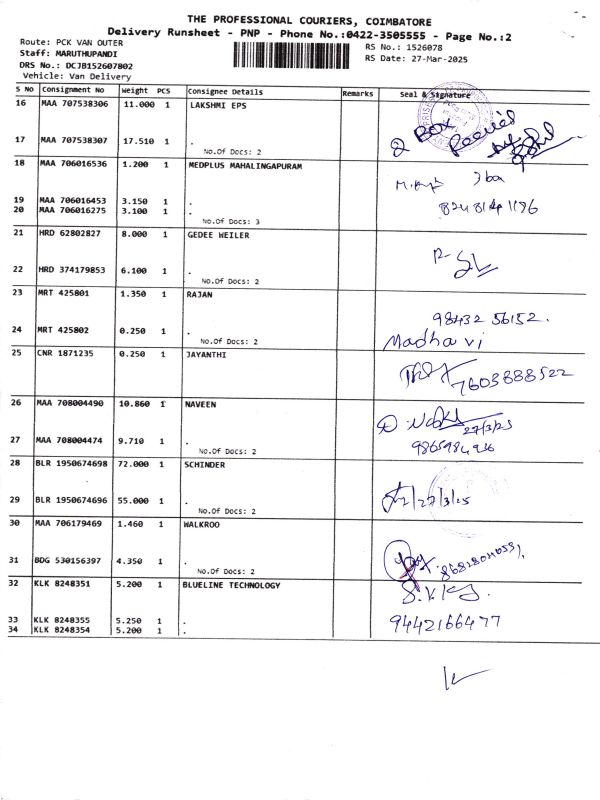 THE PROFESSIONAL COURIERS, COIMBATORE
Delivery Runsheet - PNP - Phone No.:0422-3505555 - Page No.:2
Route: PCK VAN OUTER
RS No.: 1526078
Staff: MARUTHUPANDI
RS Date: 27-Mar-2025
DRS No.: DCJB152607802
Vehicle: Van Delivery
S No Consignment No Weight PCS Consignee Details Remarks Seal & Signature
16 MAA 707538306 11.000 1 LAKSHMI EPS
2 Box Received
17 MAA 707538307 17.510 1 .
No.Of Docs: 2
18 MAA 706016536 1.200 1 MEDPLUS MAHALINGAPURAM
19 MAA 706016453 3.150 1 .
20 MAA 706016275 3.100 1 .
No.Of Docs: 3
21 HRD 62802827 8.000 1 GEDEE WEILER
22 HRD 374179853 6.100 1 .
No.Of Docs: 2
23 MRT 425801 1.350 1 RAJAN
98432 56152.
24 MRT 425802 0.250 1 .
No.Of Docs: 2
Madhavi
25 CNR 1871235 0.250 1 JAYANTHI
7603888522
26 MAA 708004490 10.860 1 NAVEEN
27/3/25
27 MAA 708004474 9.710 1 .
No.Of Docs: 2
28 BLR 1950674698 72.000 1 SCHINDER
29 BLR 1950674696 55.000 1 .
27/3/25
No.Of Docs: 2
30 MAA 706179469 1.460 1 WALKROO
31 BDG 530156397 4.350 1 .
No.Of Docs: 2
32 KLK 8248351 5.200 1 BLUELINE TECHNOLOGY
33 KLK 8248355 5.250 1 .
9442166477
34 KLK 8248354 5.200 1 .